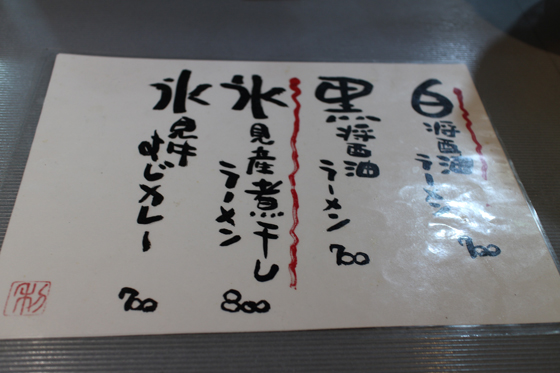 白醤油ラーメン
700
黒醤油ラーメン
700
氷見産煮干しラーメン
800
氷見牛すじカレー
700